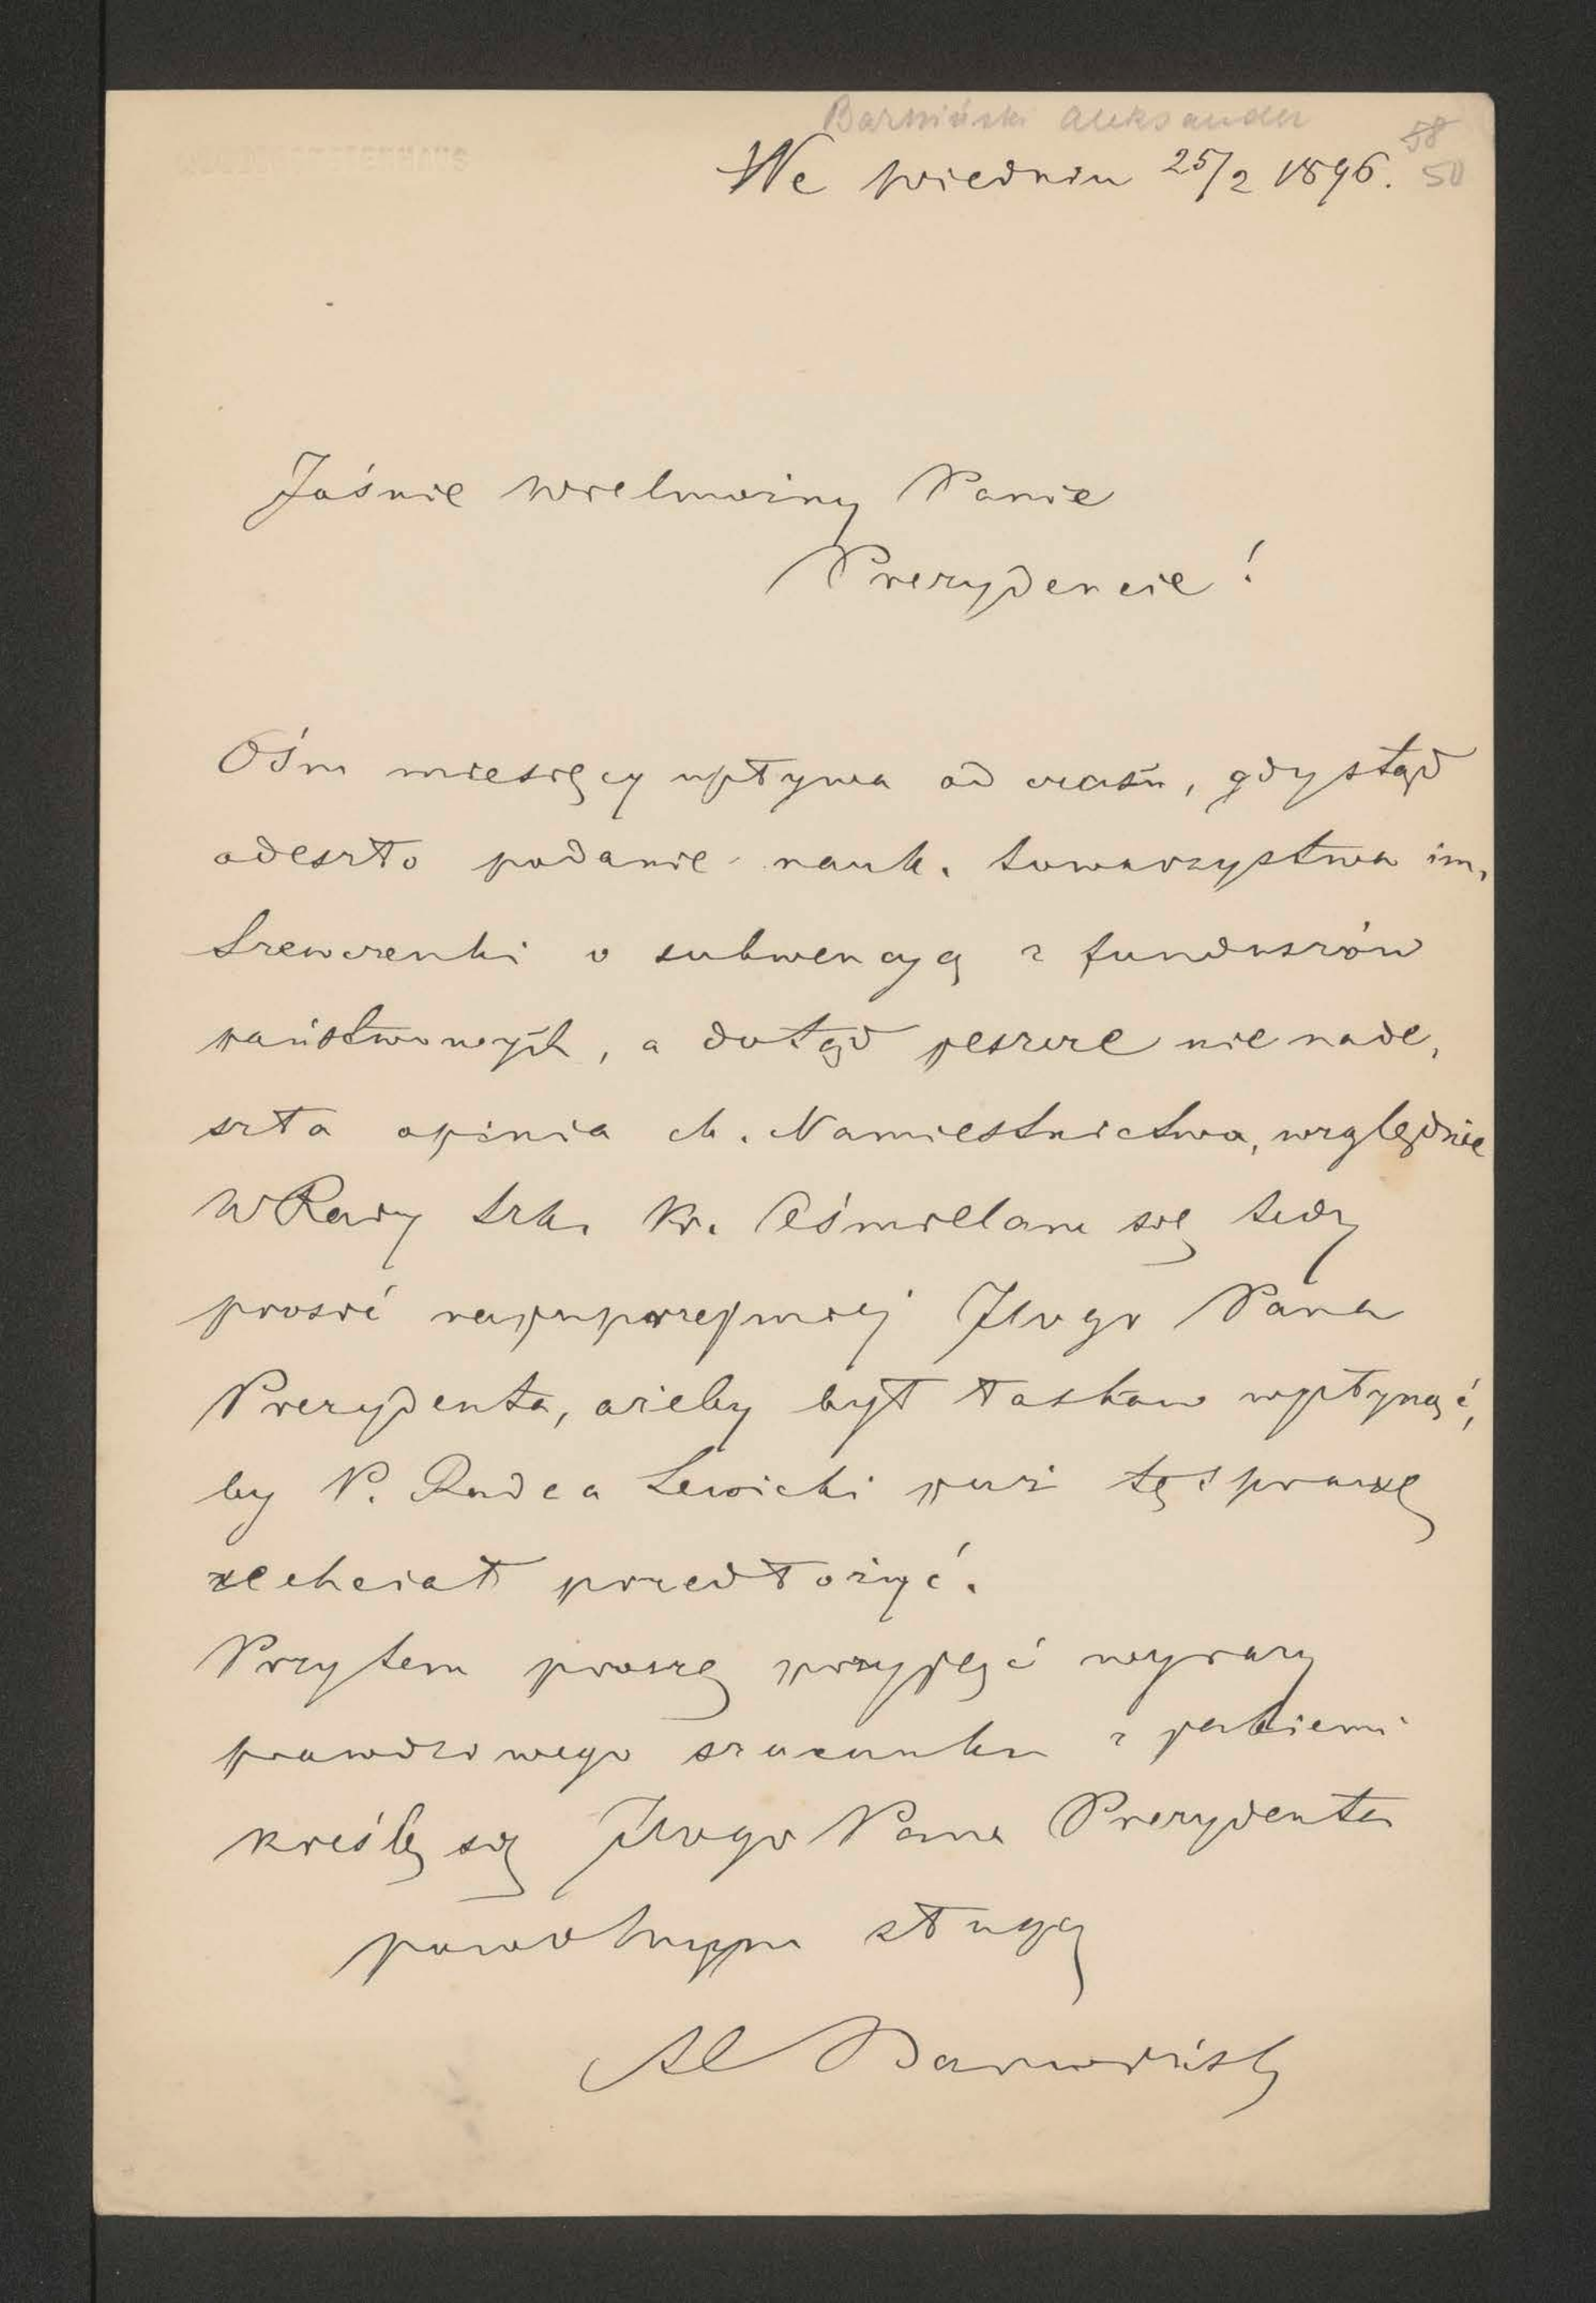 Barwiński Aleksander
58
50
We Wiedniu 25/2 1896.
Jaśnie Wielmożny Panie
Prezydencie!
Ośm miesięcy upływa od czasu, gdy stąd
odeszło podanie nauk. towarzystwa im.
Szewczenki o subwencyą z funduszów
państwowych, a dotąd jeszcze nie nade,
szła opinia ck. Namiestnictwa, względnie
W Rady szk. kr. Ośmielam się tedy
prosić najuprzejmiej JWgo Pana
Prezydenta, ażeby był łaskaw wpłynąć,
by P. Radca Lewicki już tę sprawę
zechciał przedłożyć.
Przytem proszę przyjąć wyrazy
prawdziwego szacunku z jakiemi
kreślę się JWgo Pana Prezydenta
powolnym sługą
Al Barwiński